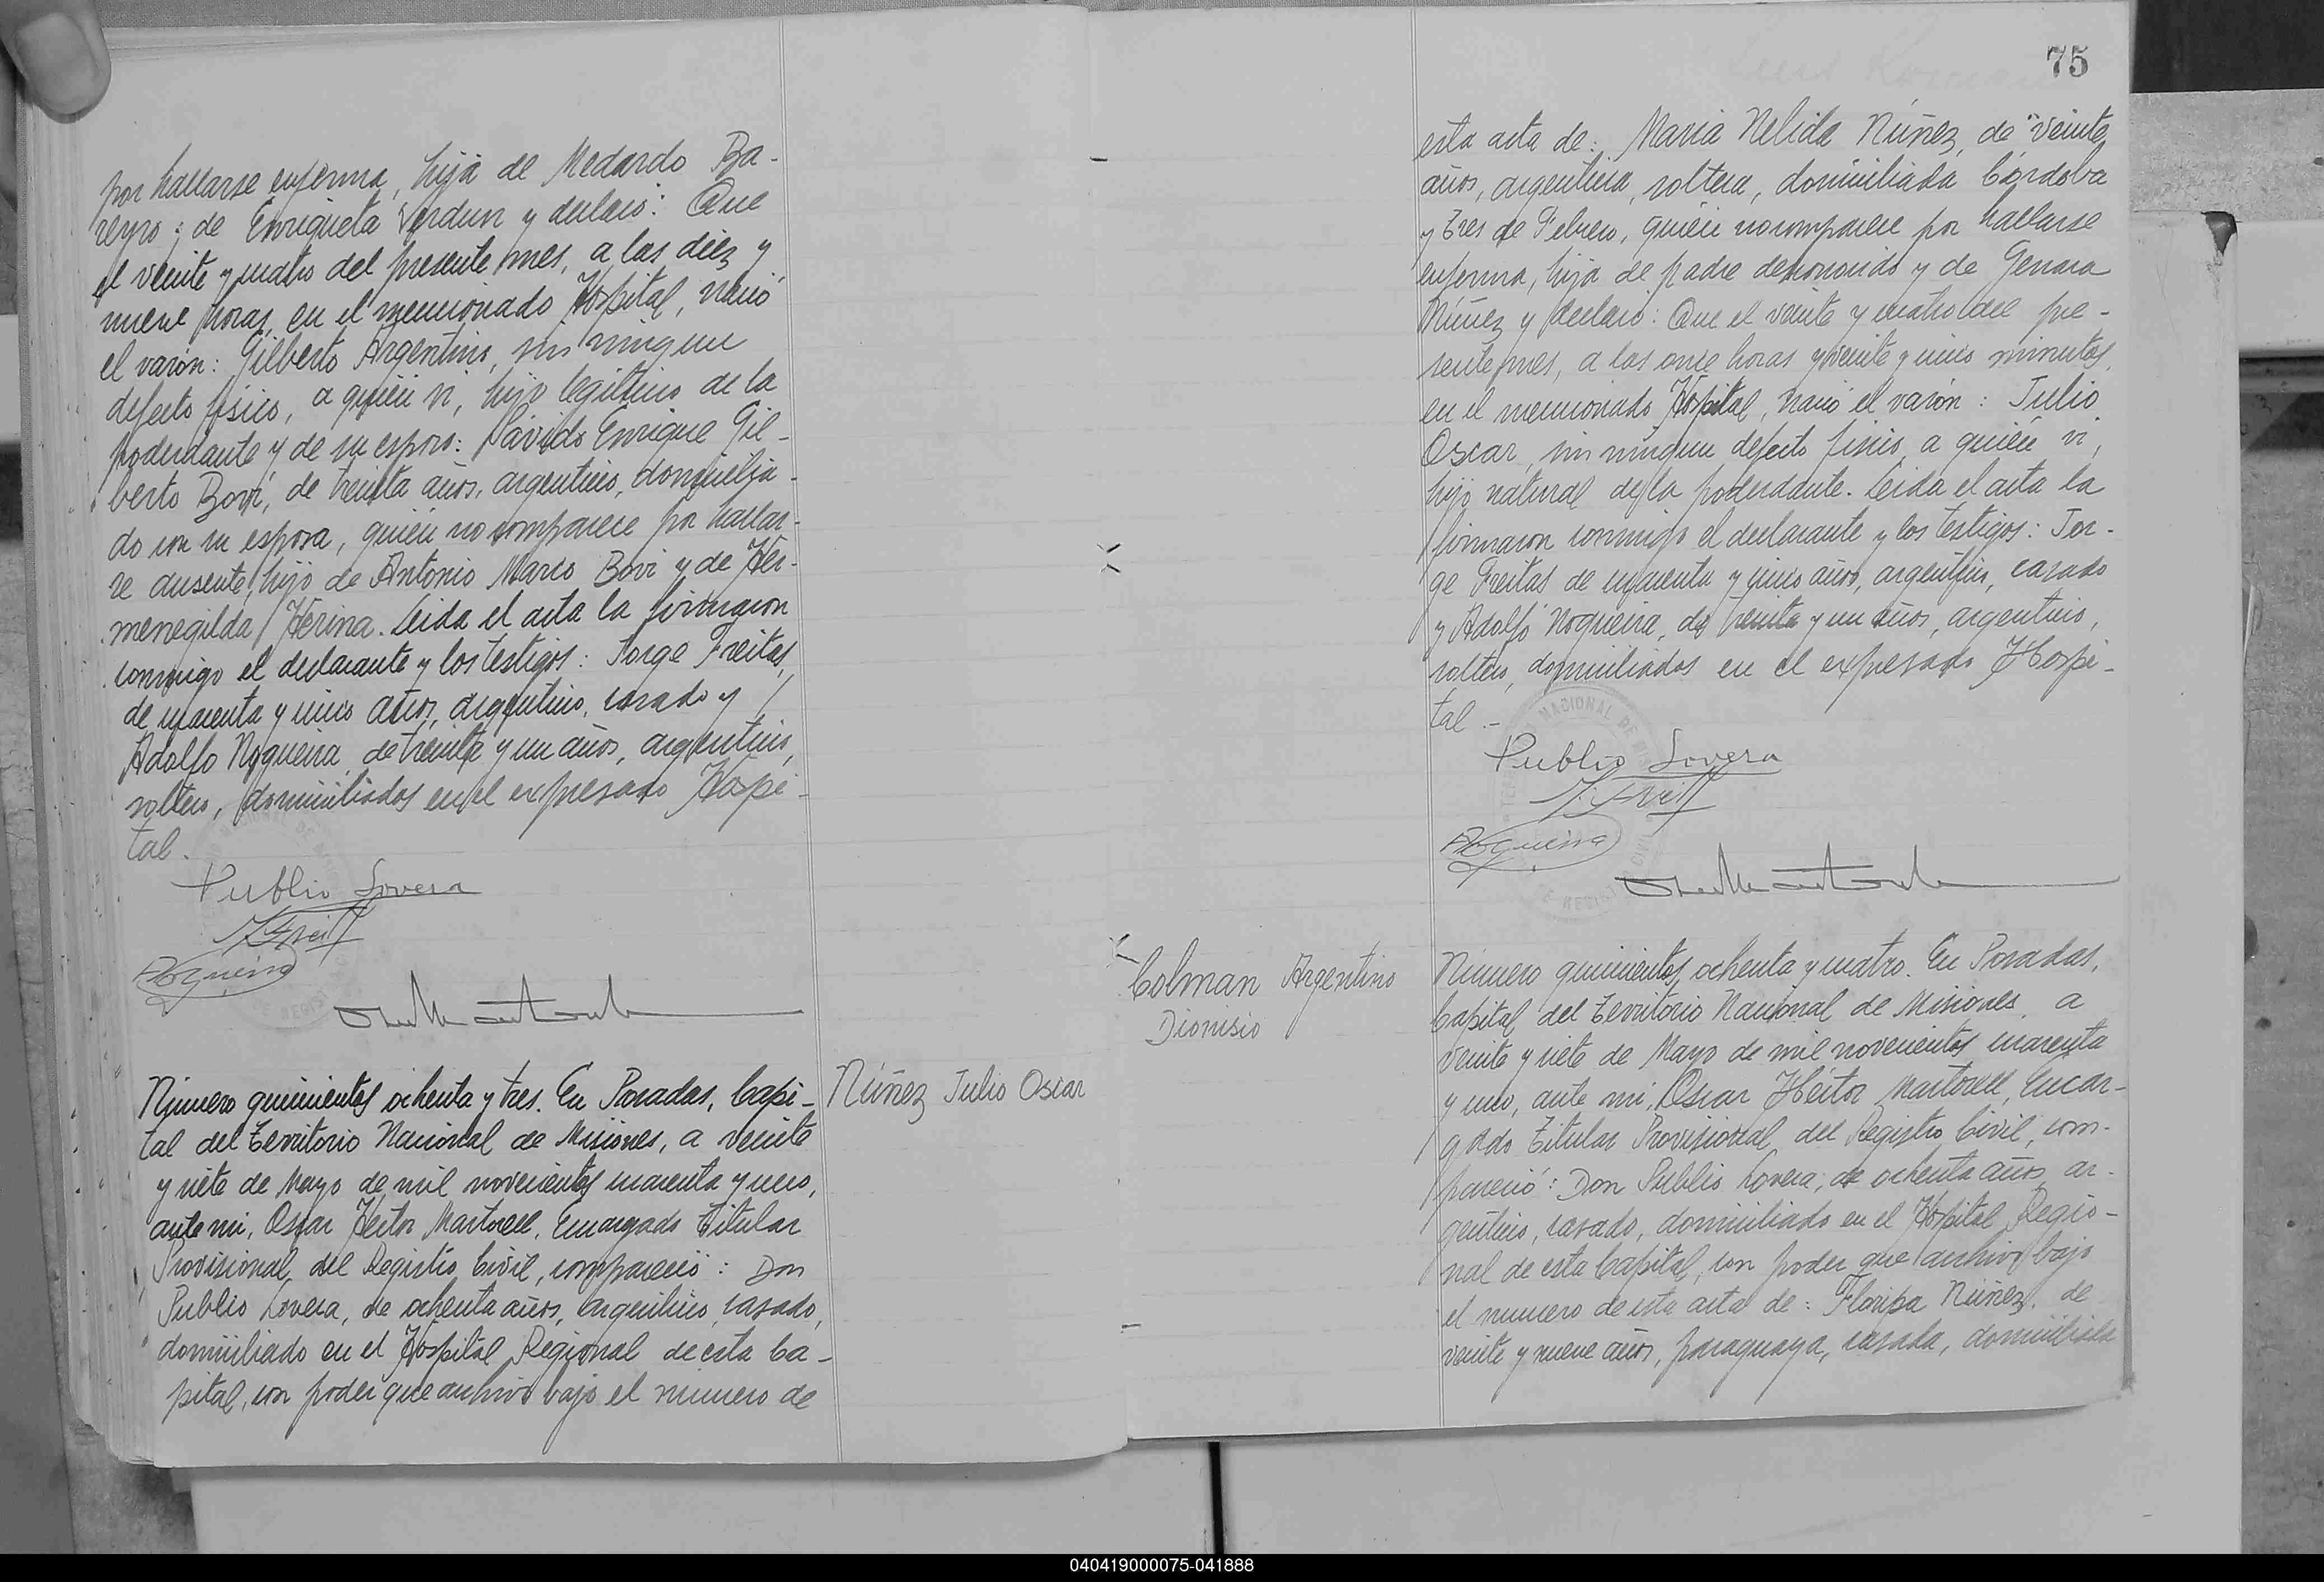 por hallarse enferma, hija de Medardo Ba-
reyro y de Enriqueta Verdun y declaró: Que
el veinte y cuatro del presente mes, a las diez y
nueve horas, en el mencionado Hospital, nació
el varón: Gilberto Argentino, sin ningun
defecto físico, a quién vi, hijo legítimo de la
poderdante y de su esposo: Davids Enrique Gil-
berto Bovi, de treinta años, argentino, domicilia-
do con su esposa, quién no comparece por hallar-
se ausente, hijo de Antonio Marco Bovi y de Her-
menegilda Herina. Leida el acta la firmaron
conmigo el declarante y los testigos: Jorge Freitas,
de cuarenta y cinco años, argentino, casado y
Adolfo Noqueira, de treinta y un años, argentino,
soltero, domiciliados en el expresado Hospi-
tal.
Publio Lovera
J Freit
ANoqueira
Número quinientos ochenta y tres. En Posadas, Capi-
tal del Territorio Nacional de Misiones, a veinte
y siete de Mayo de mil novecientos cuarenta y uno,
ante mi, Oscar Héctor Martorell, Encargado Titular
Provisional del Registro Civil, compareció: Don
Publio Lovera, de ochenta años, argentino, casado,
domiciliado en el Hospital Regional de esta Ca-
pital, con poder que archivo bajo el número de
Núñez Julio Oscar
75
esta acta de: María Nelida Núñez, de veinte
años, argentina, soltera, domiciliada Córdoba
y Tres de Febrero, quién no comparece por hallarse
enferma, hija de padre desconocido y de Genara
Núñez y declaró: Que el veinte y cuatro del pre-
sente mes, a las once horas y veinte y cinco minutos,
en el mencionado Hospital, nació el varón: Julio
Oscar, sin ningun defecto físico, a quién vi,
hijo natural de la poderdante. Leida el acta la
firmaron conmigo el declarante y los testigos: Jor-
ge Freitas de cuarenta y cinco años, argentino, casado
y Adolfo Noqueira, de treinta y un años, argentino,
soltero, domiciliados en el expresado Hospi-
tal.-
Publio Lovera
J. Freit
ANoqueira
Colman Argentino
Dionisio
Número quinientos ochenta y cuatro. En Posadas,
Capital del Territorio Nacional de Misiones, a
veinte y siete de Mayo de mil novecientos cuarenta
y uno, ante mi, Oscar Héctor Martorell, Encar-
gado Titular Provisional del Registro Civil, com-
pareció: Don Publio Lovera, de ochenta años, ar-
gentino, casado, domiciliado en el Hospital Regio-
nal de esta Capital, con poder que archivo bajo
el numero de esta acta de: Floripa Núñez, de
veinte y nueve años, paraguaya, casada, domiciliada
040419000075-041888